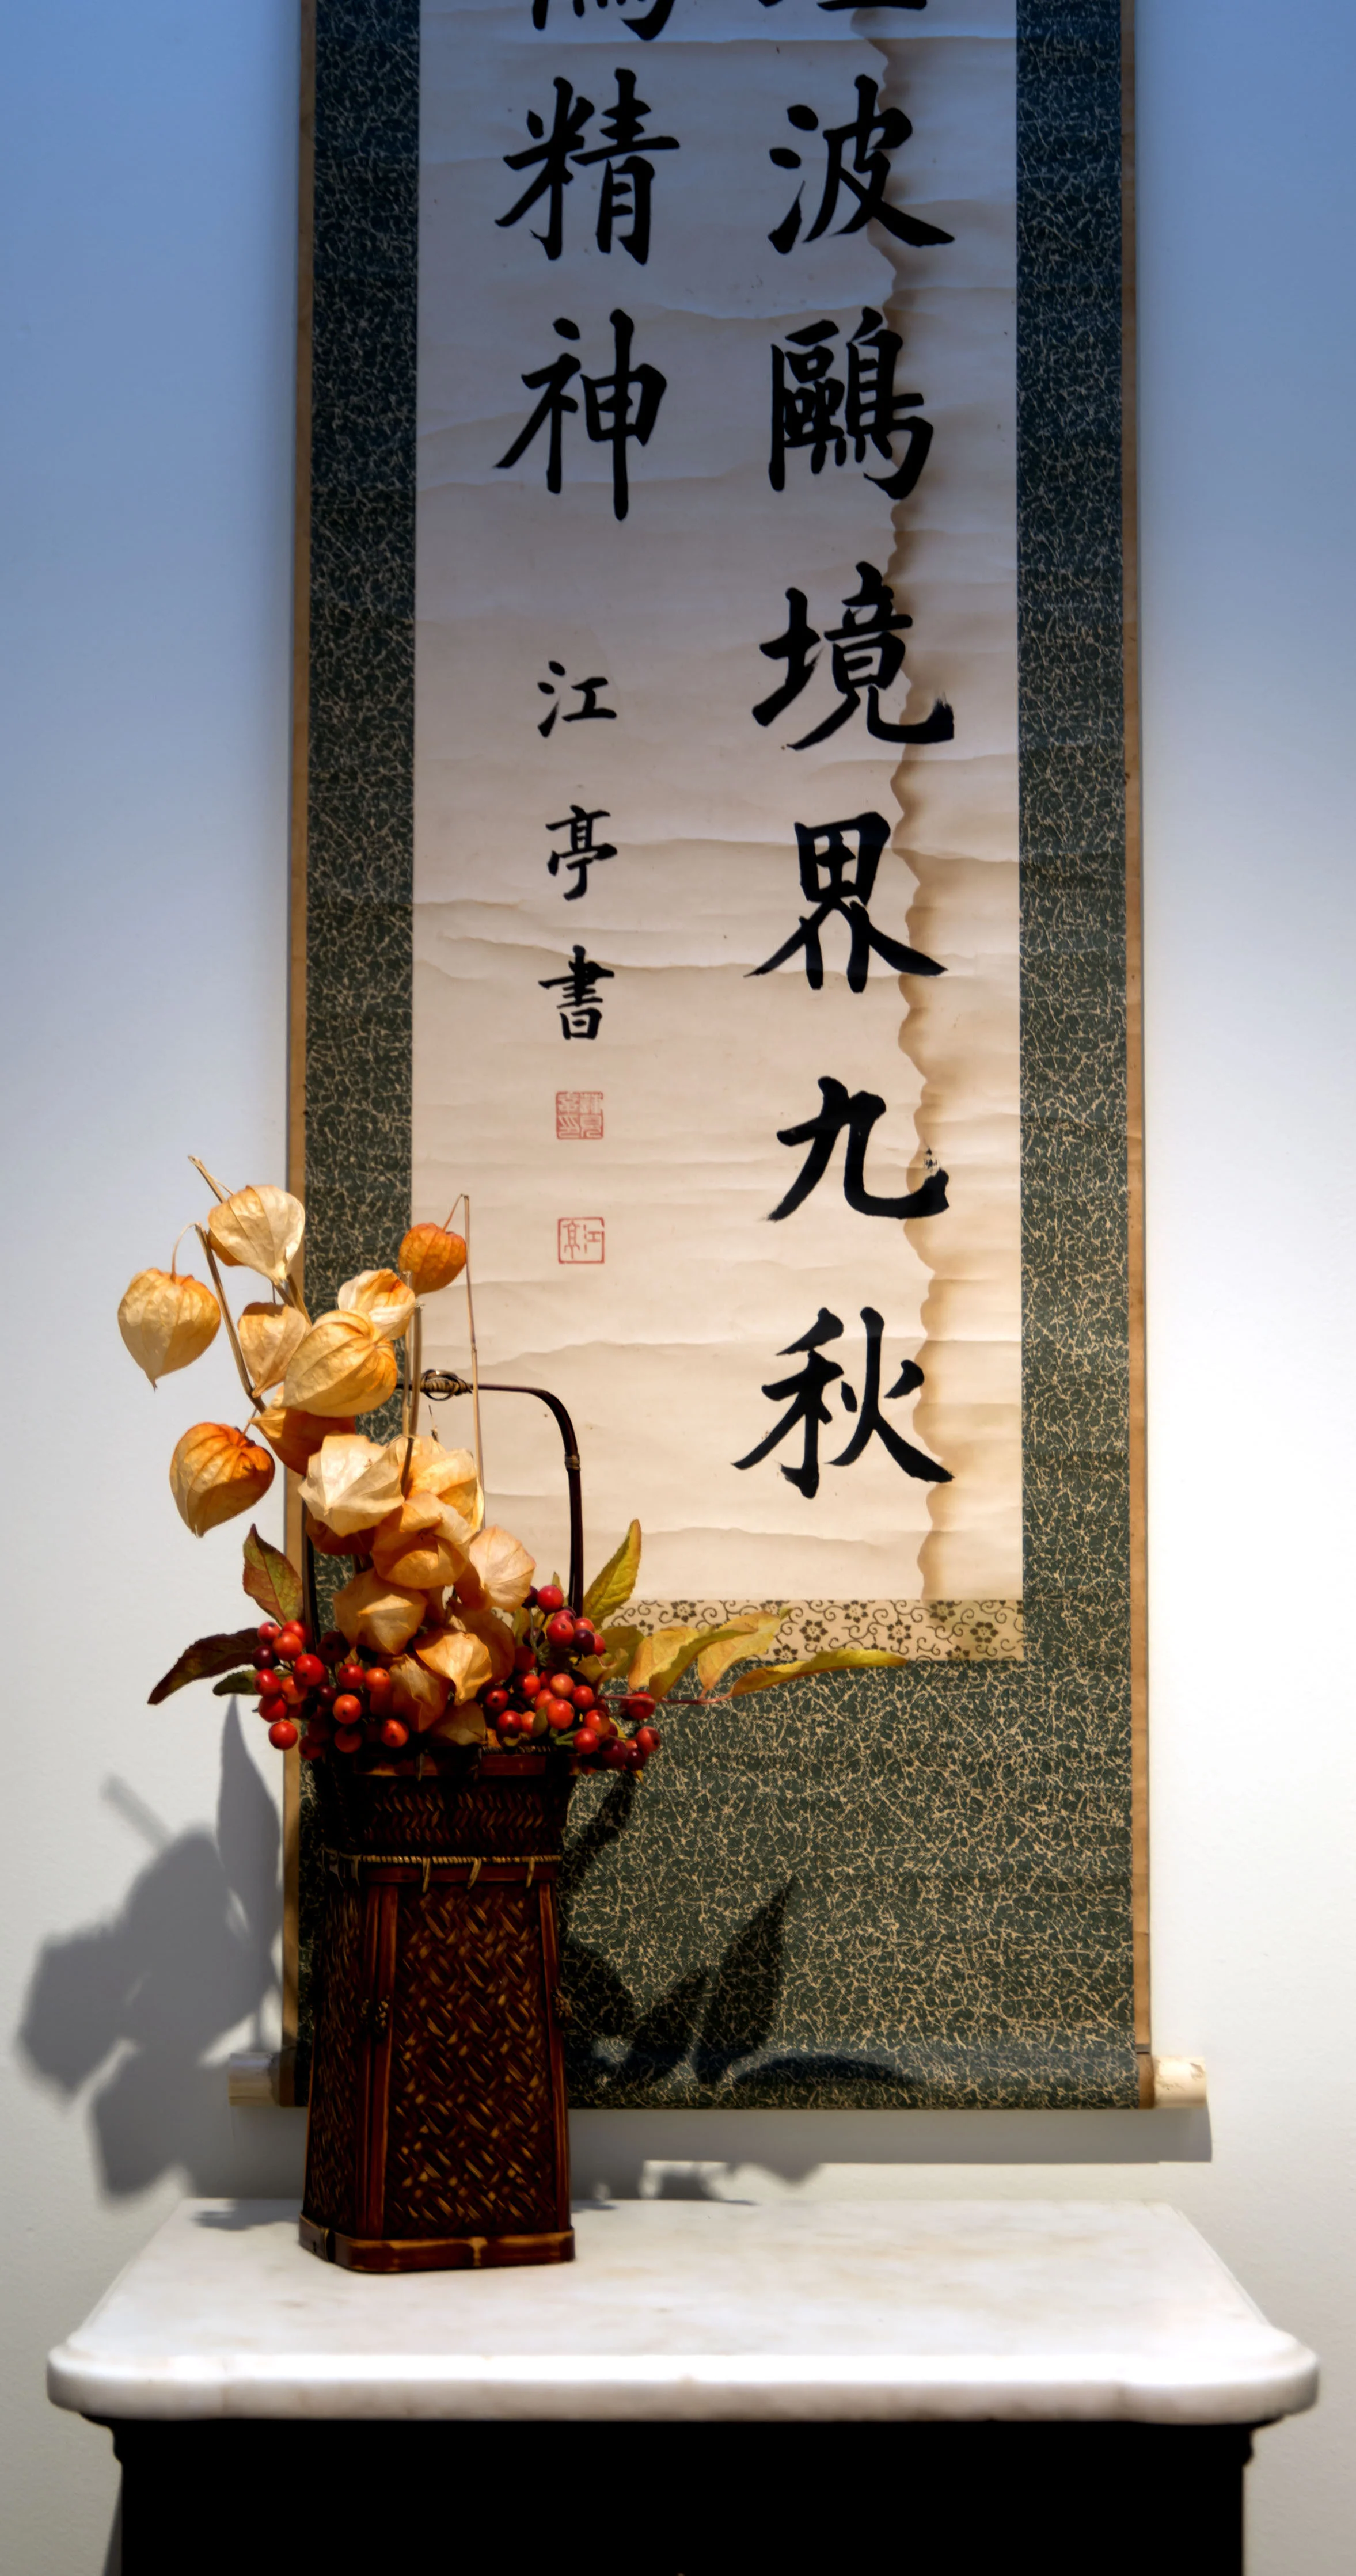 波鷗境界九秋
精神
江亭書
江亭